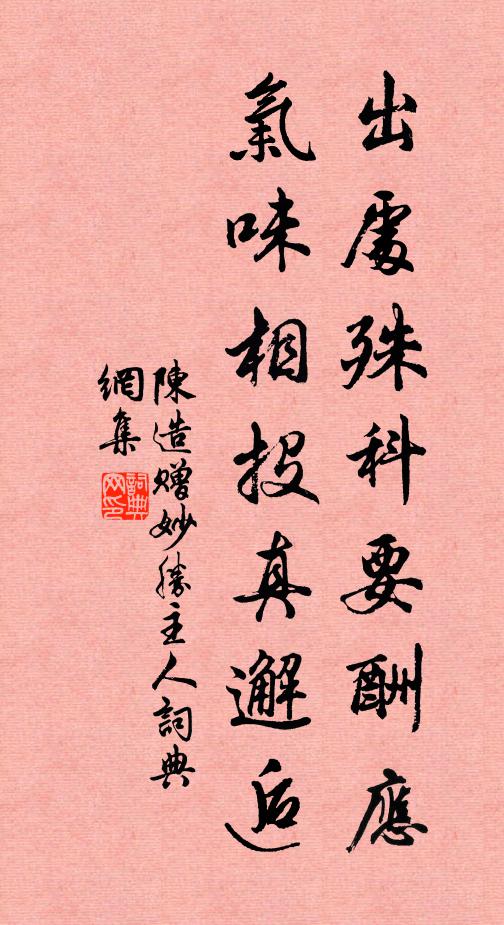 出處殊科要酬應
氣味相投真邂逅
陳造贈妙勝主人詞典
網集
詞典網印